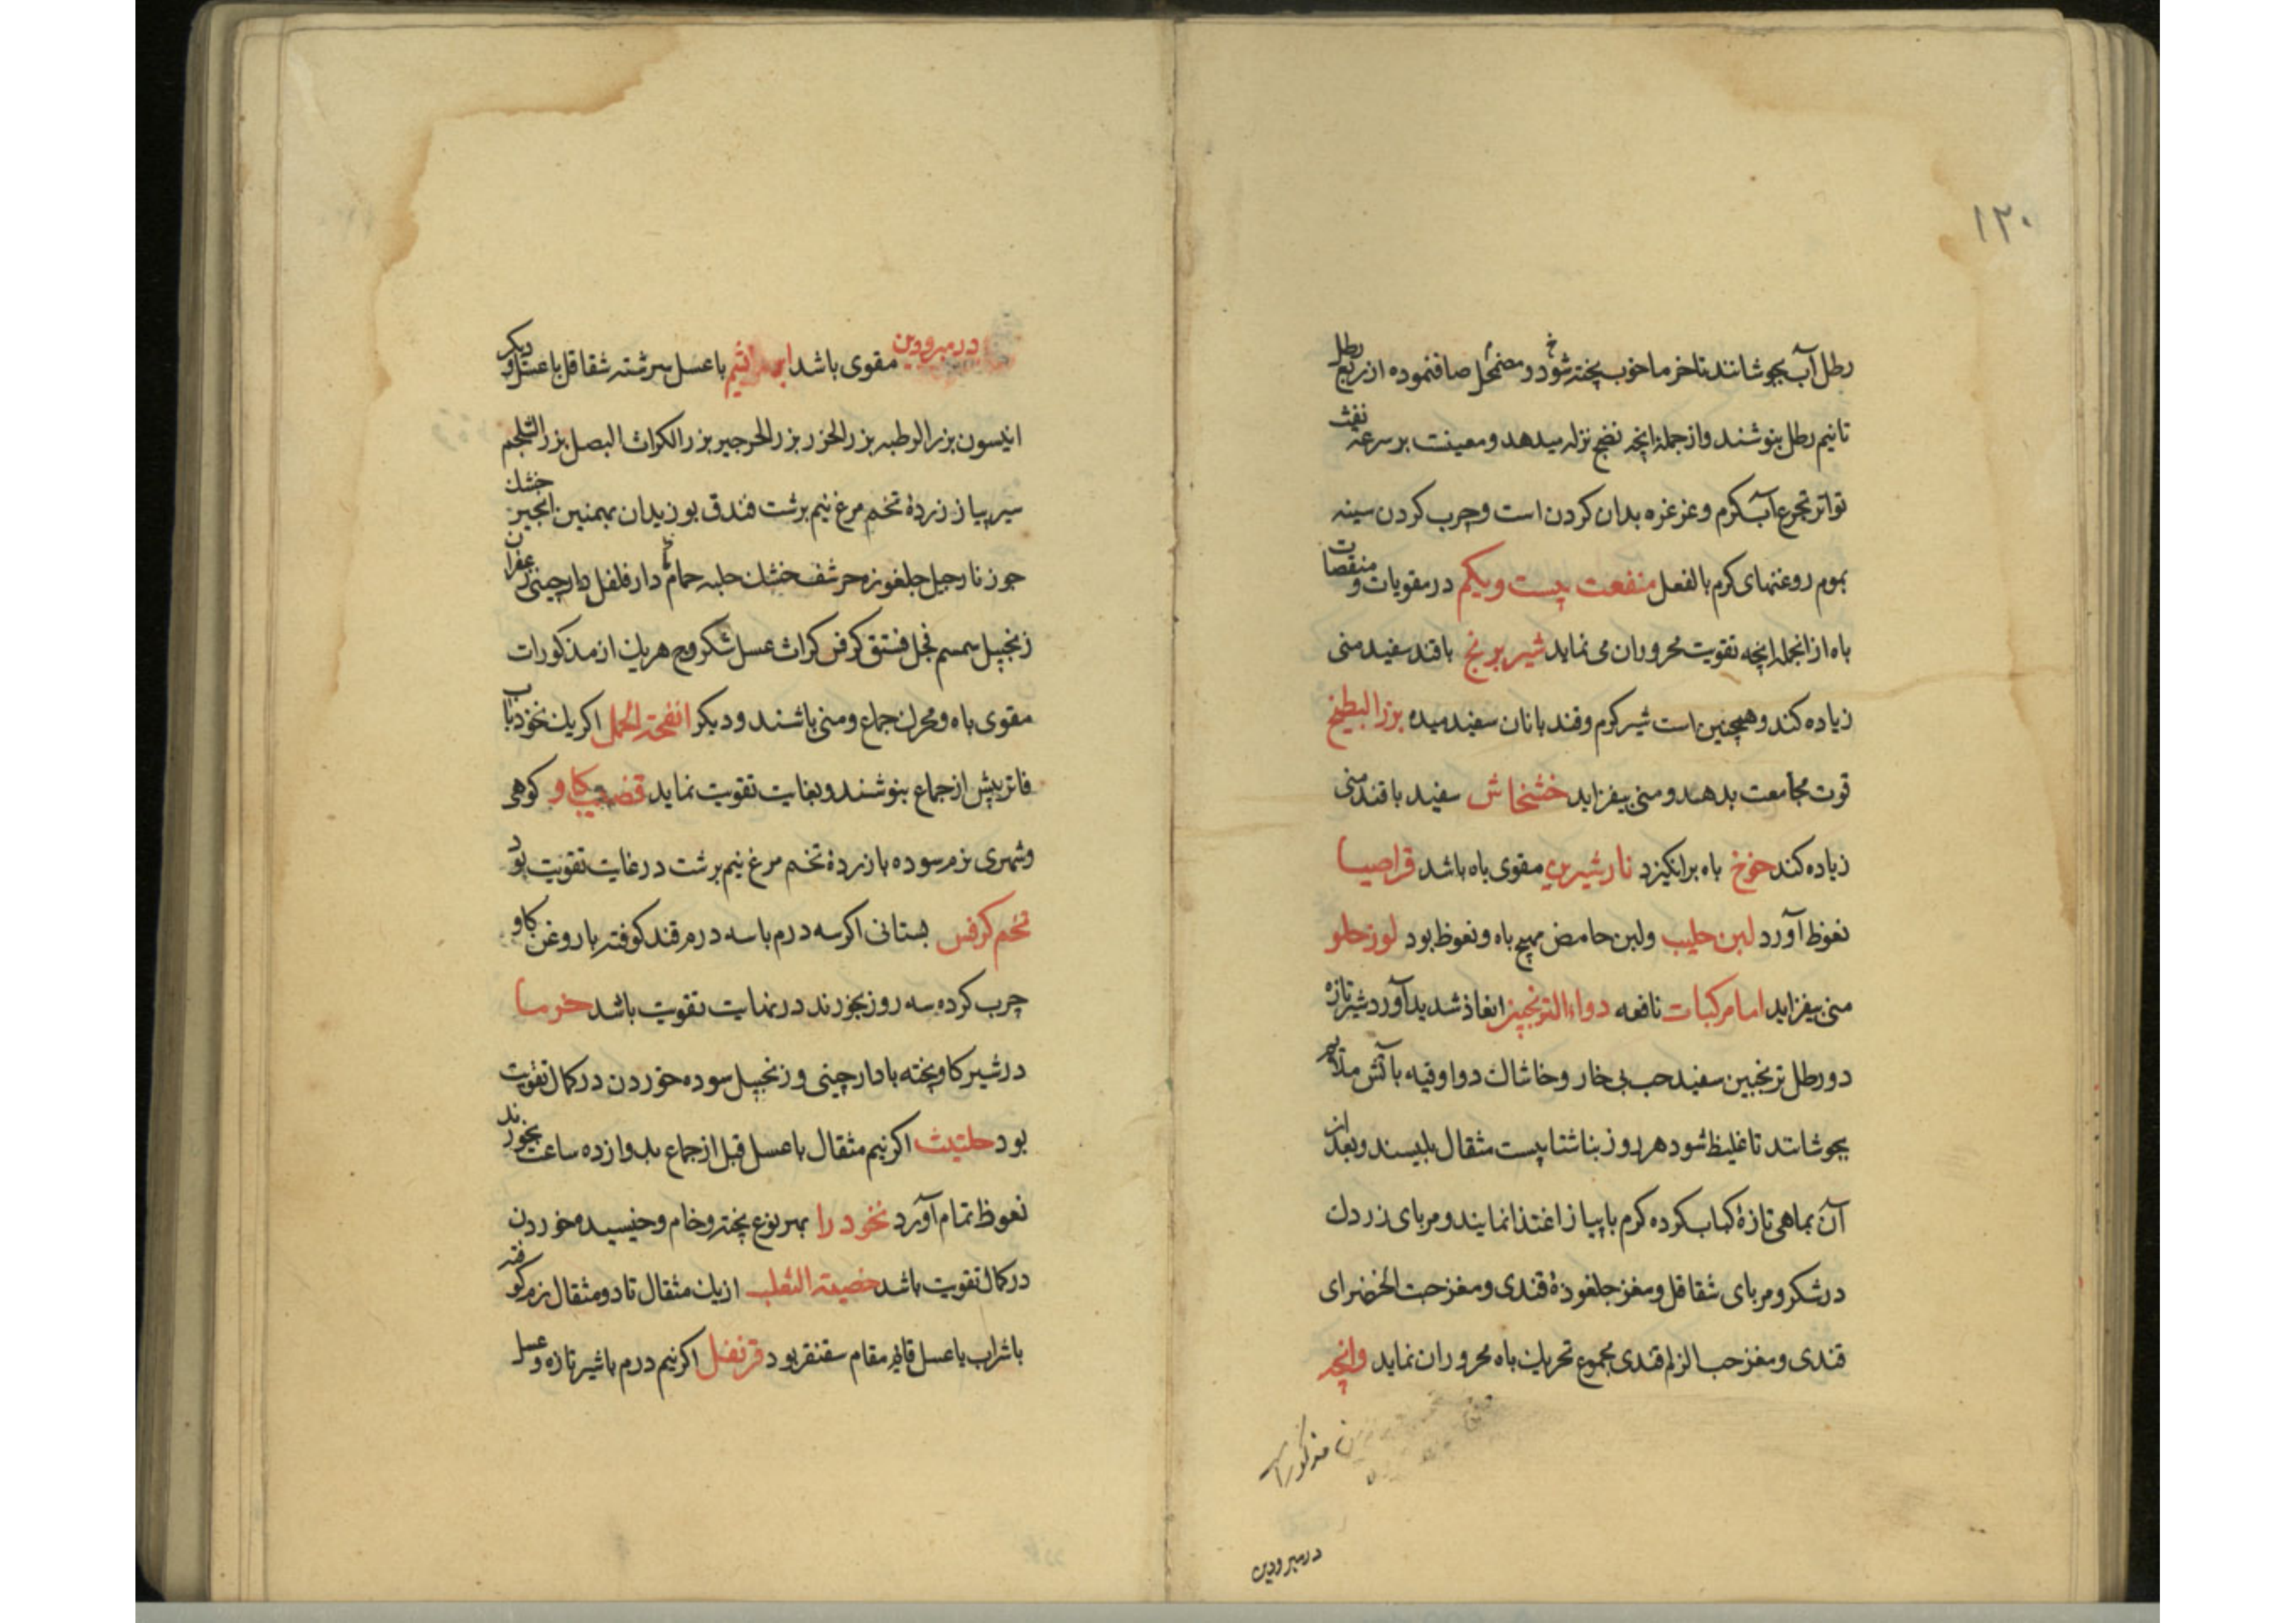 ١٢٠
رطل آب بجوشانند تا خرما خوب پخته شود و مضمحل صاف نموده از ربع رطل
تا نیم رطل بنوشند و از جملهٔ انچه نضج نزله میدهد و معینت بر سرعة نفث
تواتر تجرع آب کرم و غرغره بدان کردن است و چرب کردن سینه
بموم روغنهای کرم بالفعل منفعت بیست و یکم در مقویات و منقصات
باه از انجمله انچه تقویت محروران می نماید شیر برنج با قند سفید منی
زیاده کند و همچنین است شیر کرم و قند با نان سفید میده بزر البطیخ
قوت مجامعت بدهد و منی بیفزاید خشخاش سفید با قند منی
زیاده کند خوخ باه برانکیزد نار شیرین مقوی باه باشد قراصیا
نعوظ آورد لبن حلیب ولبن حامض مهیج باه و نعوظ بود لوز حلو
منی بیفزاید اما مرکبات نافعه دواء الترنجبین انعاظ شدید آورد شیر تازه
دو رطل ترنجبین سفید حب بی خار و خاشاك دو اوقیه با آتش ملایم
بجوشانند تا غلیظ شود هر روز بناشتا بیست مثقال بلیسند و بعد از
آن بماهی تازهٔ کباب کرده کرم با پیاز اغتذا نمایند و مربای زردك
در شکر و مربای شقاقل و مغز جلغوزهٔ قندی و مغز حبت الخضرای
قندی و مغز حب الزلم قندی مجموع تحریك باه محروران نماید وانچه
مذکوراست
در مبرودین
در مبرودین مقوی باشد با عسل سرشته شقاقل با عسل و دیکر
انیسون بزر الرطبه بزر الجزر بزر الجرجیر بزر الکراث البصل بزر الشلجم
سیر پیاز زردهٔ تخم مرغ نیم برشت فندق بوزیدان بهمنین انجیر خشك
جوز نارجیل جلغوزه حرشف خشك حلبه حمام دارفلفل دارچینی زعفران
زنجبیل سمسم فجل فستق کرفس کراث عسل شکر وج هریك از مذکورات
مقوی باه و محرك جماع و منی باشند و دیکر انفحة الجمل اکر یك نخود با آب
فاتر پیش از جماع بنوشند و بغایت تقویت نماید قضیب کاو کوهی
و شهری نرم سوده با زردهٔ تخم مرغ نیم برشت در غایت تقویت بود
تخم کرفس بستانی اکر سه درم با سه درم قند کوفته با روغن کاو
چرب کرده سه روز بخورند در نهایت تقویت باشد خرما
در شیر کاو پخته با دارچینی و زنجبیل سوده خوردن در کمال تقویت
بود حلتیث اکر نیم مثقال با عسل قبل از جماع بدوازده ساعت بخورند
نعوظ تمام آورد نخود را بهر نوع پخته و خام و خیسیده خوردن
در کمال تقویت باشد خصیة الثعلب از یك مثقال تا دو مثقال نرم کوفته
با شراب یا عسل قایم مقام سقنقر بود قرنفل اکر نیم درم با شیر تازه و عسل